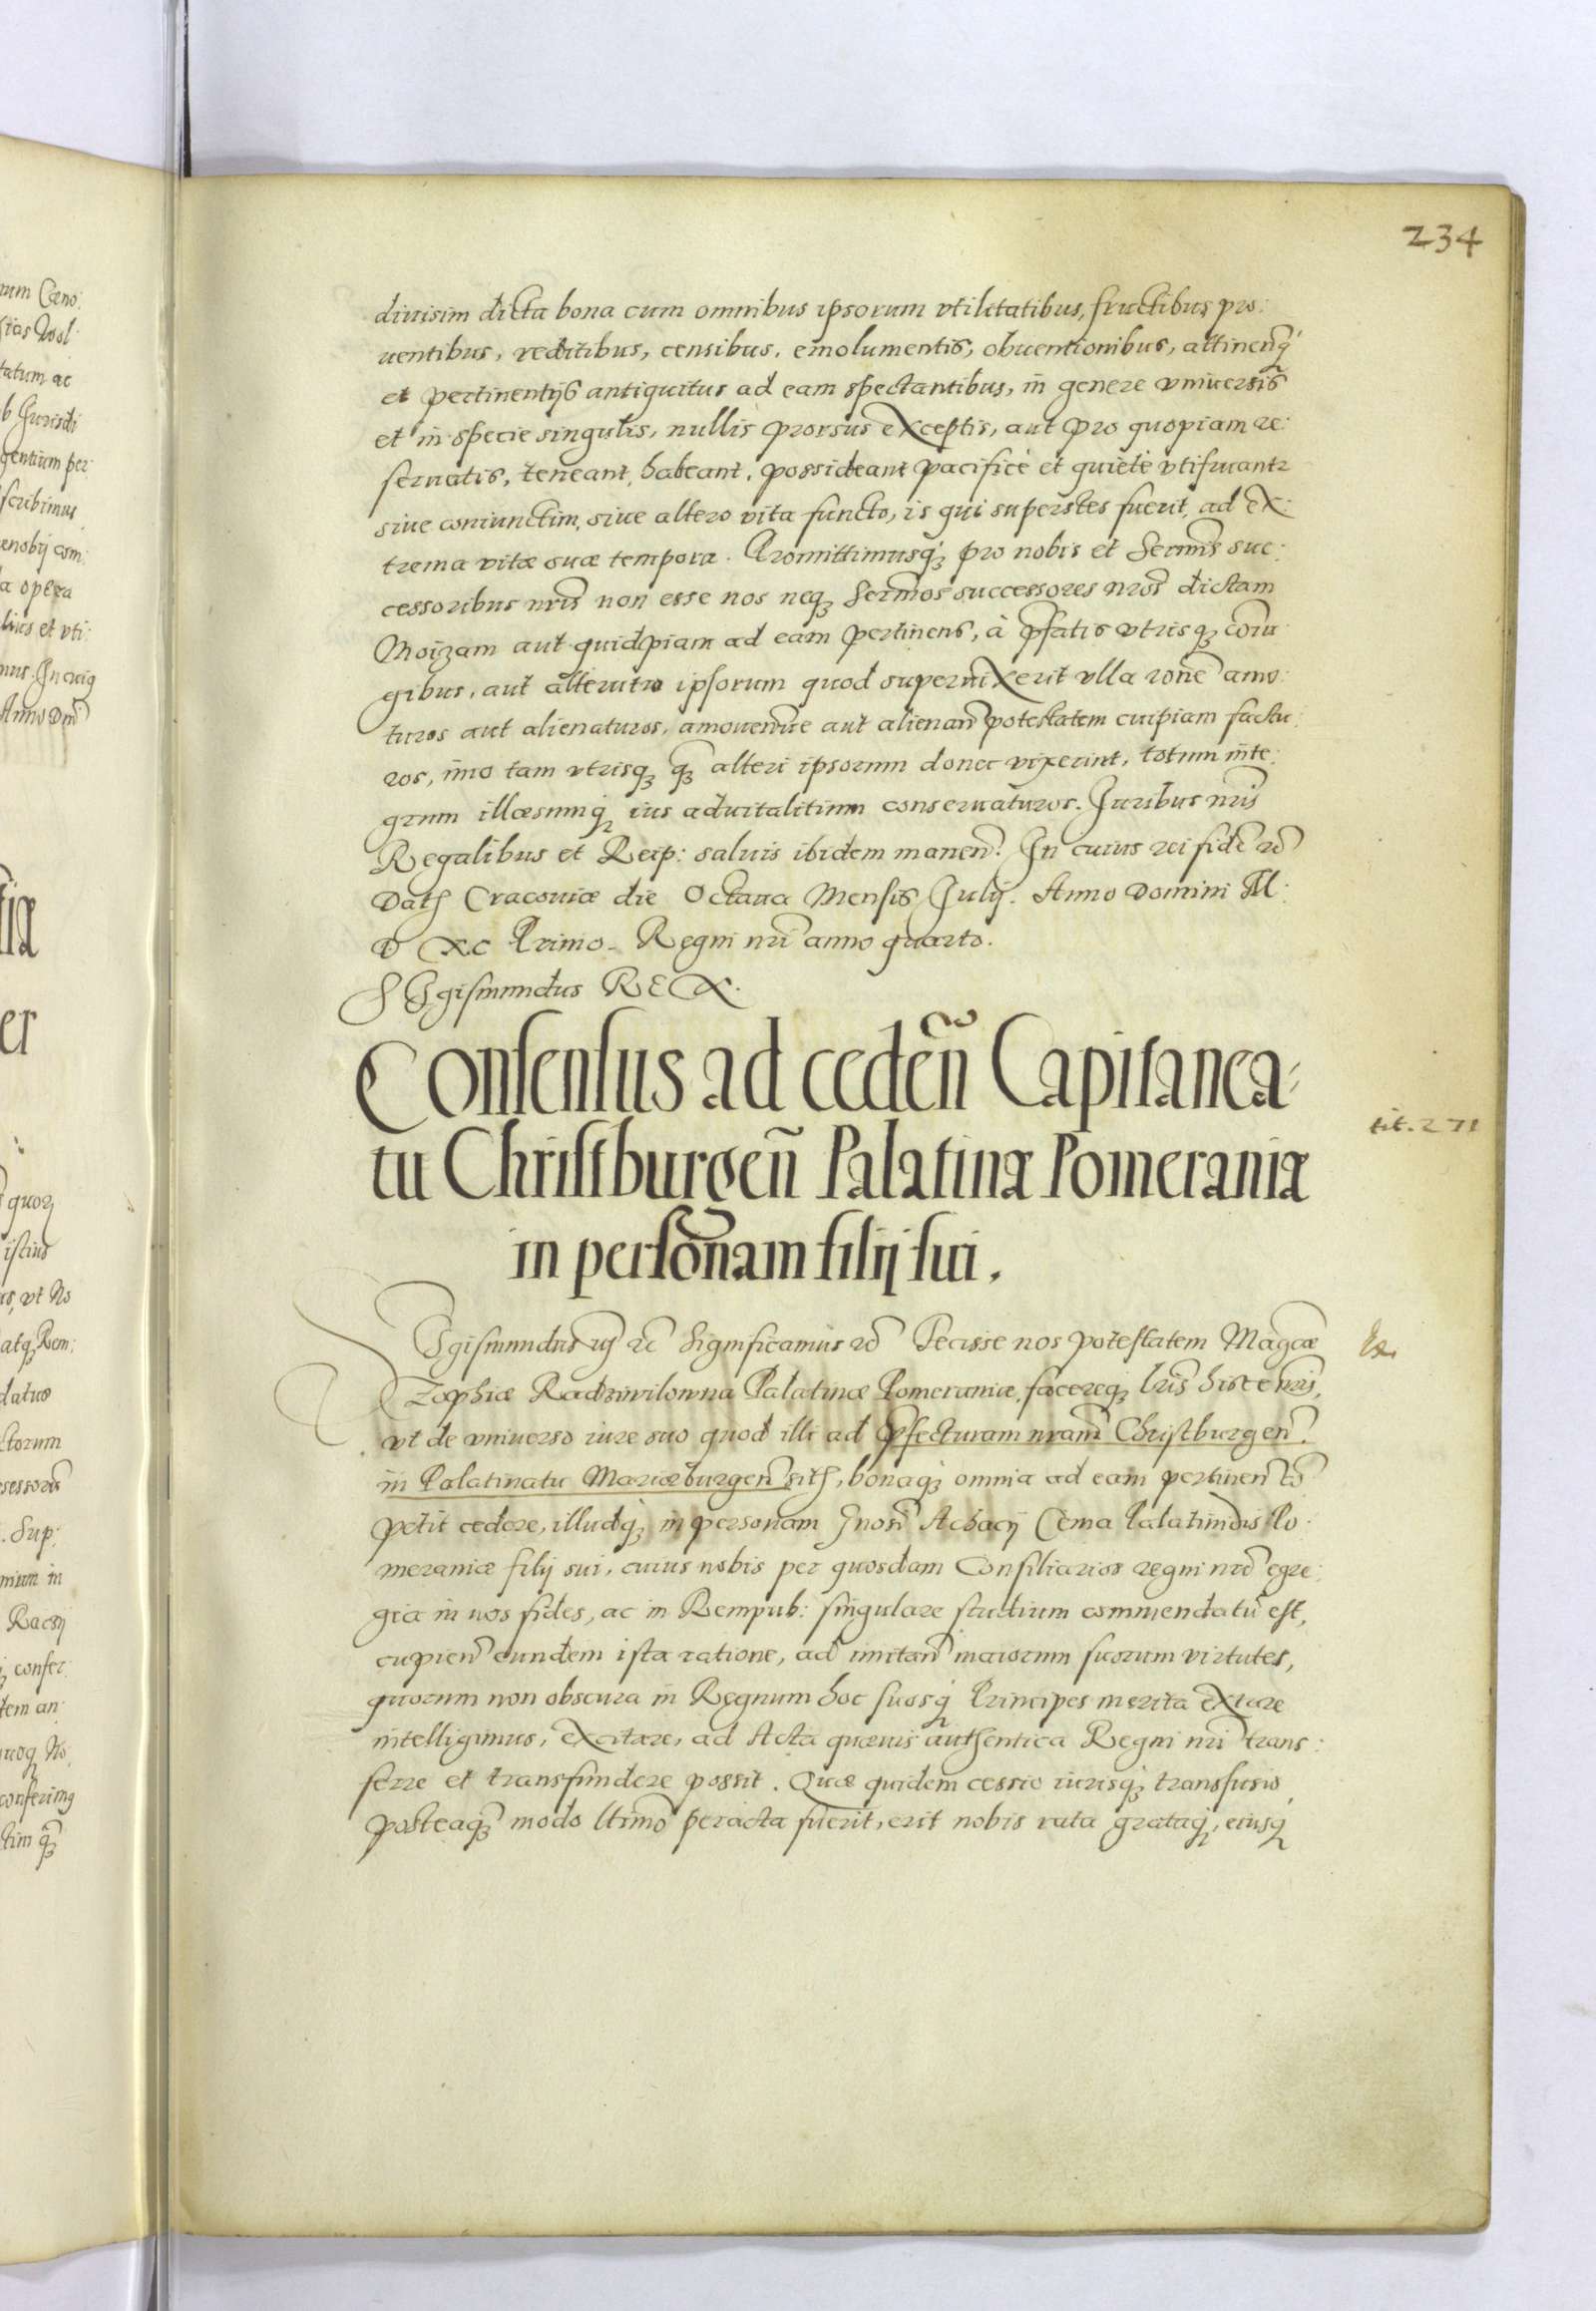 234
diuisim dicta bona cum omnibus ipsorum vtilitatibus, fructibus pro:
uentibus, reditibus, censibus, emolumentis, obuentionibus, attinen̄q́
et pertinentijs antiquitus ad eam spectantibus, in genere vniuersis
et in specie singulis, nullis prorsus exceptis, aut pro quopiam re:
seruatis, teneant, habeant, possideant pacificè et quietè vtifruantr
siue coniunctim, siue altero vita functo, is qui superstes fuerit, ad ex:
trema vitæ suæ tempora. Promittimusq́ꝫ pro nobis et Serm̄is suc:
cessoribus nr̄is non esse nos neqꝫ Serm̄os successores nr̄os dictam
Moizam aut quidpiam ad eam pertinens, à p̄fatis vtrisqꝫ coniu
gibus, aut alterutro ipsorum quod superuixerit vlla ron̄e amo:
turos aut alienaturos, amouen̄ue aut alienan̄ potestatem cuipiam factu:
ros, imo tam vtrisqꝫ qꝫ̄ alteri ipsorum donec vixerint, totum inte:
grum illæsumq́ꝫ ius aduitalitium conseruaturos. Juribus nr̄is
Regalibus et Reip: saluis ibidem manen̄. In cuius rei fidē rc̄
Datȝ Cracouiæ die Octaua Mensis Julij. Anno Domini M:
D XC Primo. Regni nr̄i anno quarto.
SIgismundus REX.
Consensus ad ceden̄ Capitanea:
tu Christburgen̄ Palatinæ Pomeraniæ
in personam filij sui.
tit. 271
SIgismundus iij rc̄ Significamus rc̄ Fecisse nos potestatem Maḡcæ
Zophiæ Radziwilowna Palatinæ Pomeraniæ, facereqꝫ lr̄is hisce nr̄is,
vt de vniuerso iure suo quod illi ad p̄fecturam nr̄am Christburgen̄.
in Palatinatu Mariæburgen̄ sitȝ, bonaq́ꝫ omnia ad eam pertinen̄
petit cedere, illudq́ꝫ in personam Gnosi Achacij Cema Palatinidis Po:
meraniæ filij sui, cuius nobis per quosdam Consiliarios regni nr̄i egre:
gia in nos fides, ac in Rempub: singulare studium commendatū est,
cupien̄ eundem ista ratione, ad imitan̄ maiorum suorum virtutes,
quorum non obscura in Regnum hoc suosq́ꝫ Principes merita extare
intelligimus, excitare, ad Acta quæuis authentica Regni nr̄i trans:
ferre et transfundere possit. Quæ quidem cessio iurisq́ꝫ transfusio,
posteaqꝫ̄ modo ltimo̅ peracta fuerit, erit nobis rata grataq́ꝫ, eiusq́ꝫ